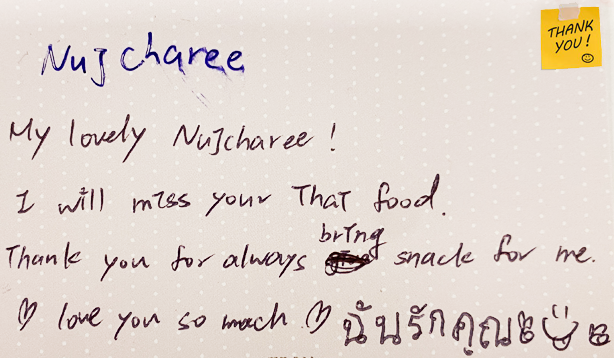 Nujcharee
THANK
YOU!
My lovely Nujcharee!
I will miss your Thai food.
Thank you for always bring snack for me.
♡ love you so much ♡ ฉันรักคุณ